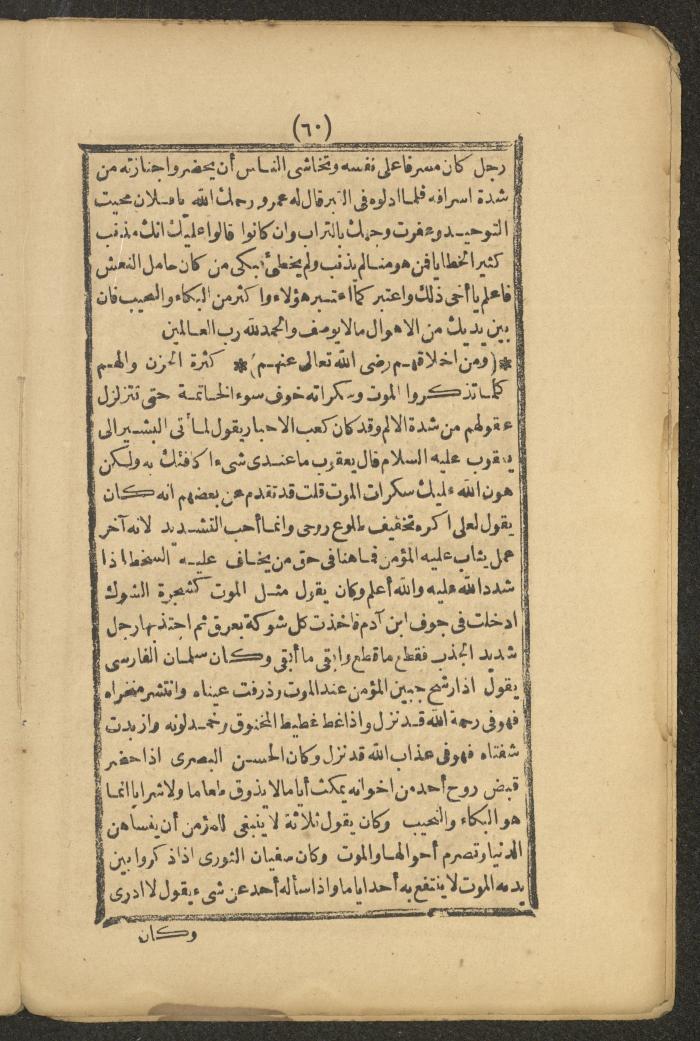 (٦٠)
رجل كان مسرفا على نفسه وتحاشى الناس أن يحضروا جنازته من
شدة اسرافه فلما ادلوه فى القبر قال له عمر ورحمك الله يا فلان صحبت
التوحيد وعفرت وجهك بالتراب وان كانوا قالوا عليك انك مذنب
كثير الخطايا فمن هو منا لم يذنب ولم يخطئ فبكى من كان حامل النعش
فاعلم يا أخى ذلك واعتبر كما اعتبر هؤلاء واكثر من البكاء والنحيب فان
بين يديك من الاهوال ما لا يوصف والحمد لله رب العالمين
*(ومن اخلاقهم رضى الله تعالى عنهم)* كثرة الحزن والهم
كلما تذكروا الموت وسكراته خوف سوء الخاتمة حتى تتزلزل
عقولهم من شدة الالم وقد كان كعب الاحبار يقول لما أتى البشير الى
يعقوب عليه السلام قال يعقوب ما عندى شىء اكافئك به ولكن
هون الله عليك سكرات الموت قلت قد تقدم عن بعضهم انه كان
يقول لعلى اكره تخفيف طلوع روحى وانما أحب التشديد لانه آخر
عمل يثاب عليه المؤمن فما هنا فى حق من يخاف عليه السخط اذا
شدد الله عليه والله أعلم وكان يقول مثل الموت كشجرة الشوك
ادخلت فى جوف ابن آدم فاخذت كل شوكة بعرق ثم اجتذبها رجل
شديد الجذب فقطع ما قطع وابقى ما أبقى وكان سلمان الفارسى
يقول اذا رشح جبين المؤمن عند الموت وذرفت عيناه وانتشر منخراه
فهو فى رحمة الله قد نزل واذا غط غطيط المخنوق وخمد لونه وازبدت
شفتاه فهو فى عذاب الله قد نزل وكان الحسن البصرى اذا حضر
قبض روح أحد من اخوانه يمكث أياما لا يذوق طعاما ولا شرابا انما
هو البكاء والنحيب وكان يقول ثلاثة لا ينبغى للمؤمن أن ينساهن
الدنيا وتصرم أحوالها والموت وكان سفيان الثورى اذا ذكروا بين
يديه الموت لا ينتفع به أحد اياما واذا سأله أحد عن شىء يقول لا ادرى
وكان